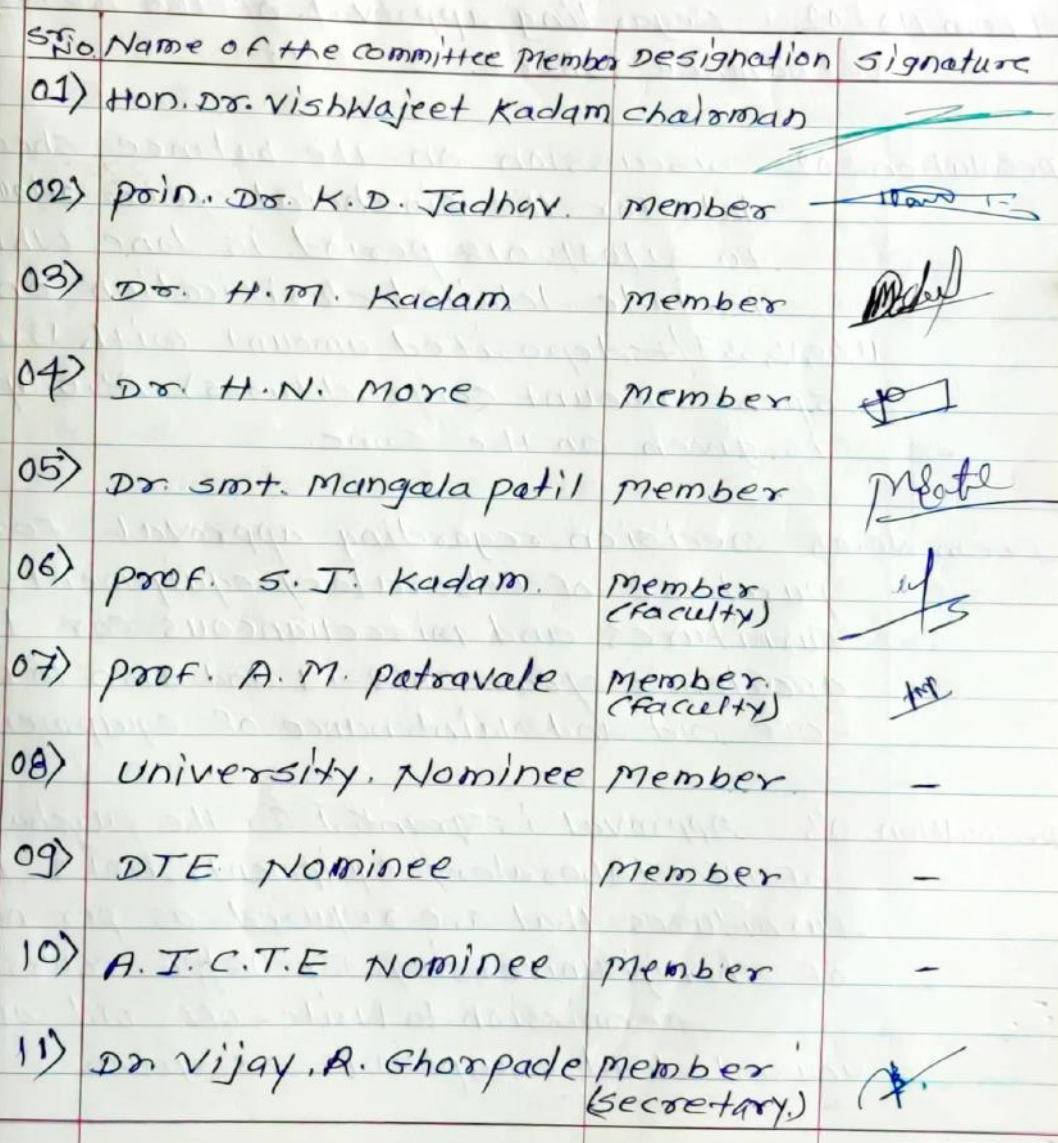 Sr. No. Name of the committee Member Designation signature
01) Hon. Dr. Vishwajeet Kadam Chairman
02) Prin. Dr. K. D. Jadhav. Member
03) Dr. H. M. Kadam Member
04) Dr. H. N. More Member
05) Dr. smt. Mangala patil Member
06) Prof. S. J. Kadam. Member
(faculty)
07) Prof. A. M. Patravale Member.
(faculty)
08) University. Nominee Member -
09) DTE Nominee Member -
10) A. I. C. T. E Nominee Member -
11) Dr. Vijay. R. Ghorpade Member
(secretary.)